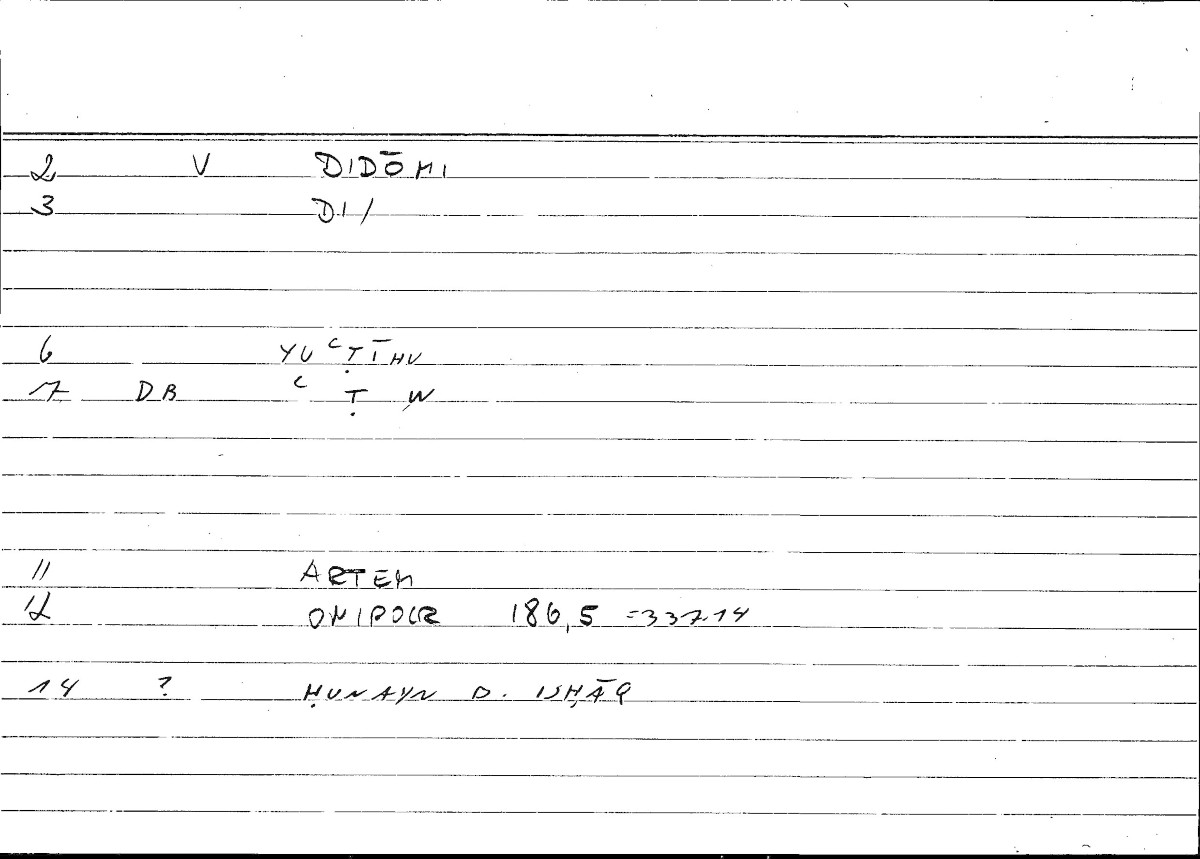 2 V DIDŌMI
3 DI/
6 YUʿṬĪHU
7 DB ʿ Ṭ W
11 ARTEM
12 ONIROCR 186,5 =337.14
14 ? ḤUNAYN B. ISḤĀQ